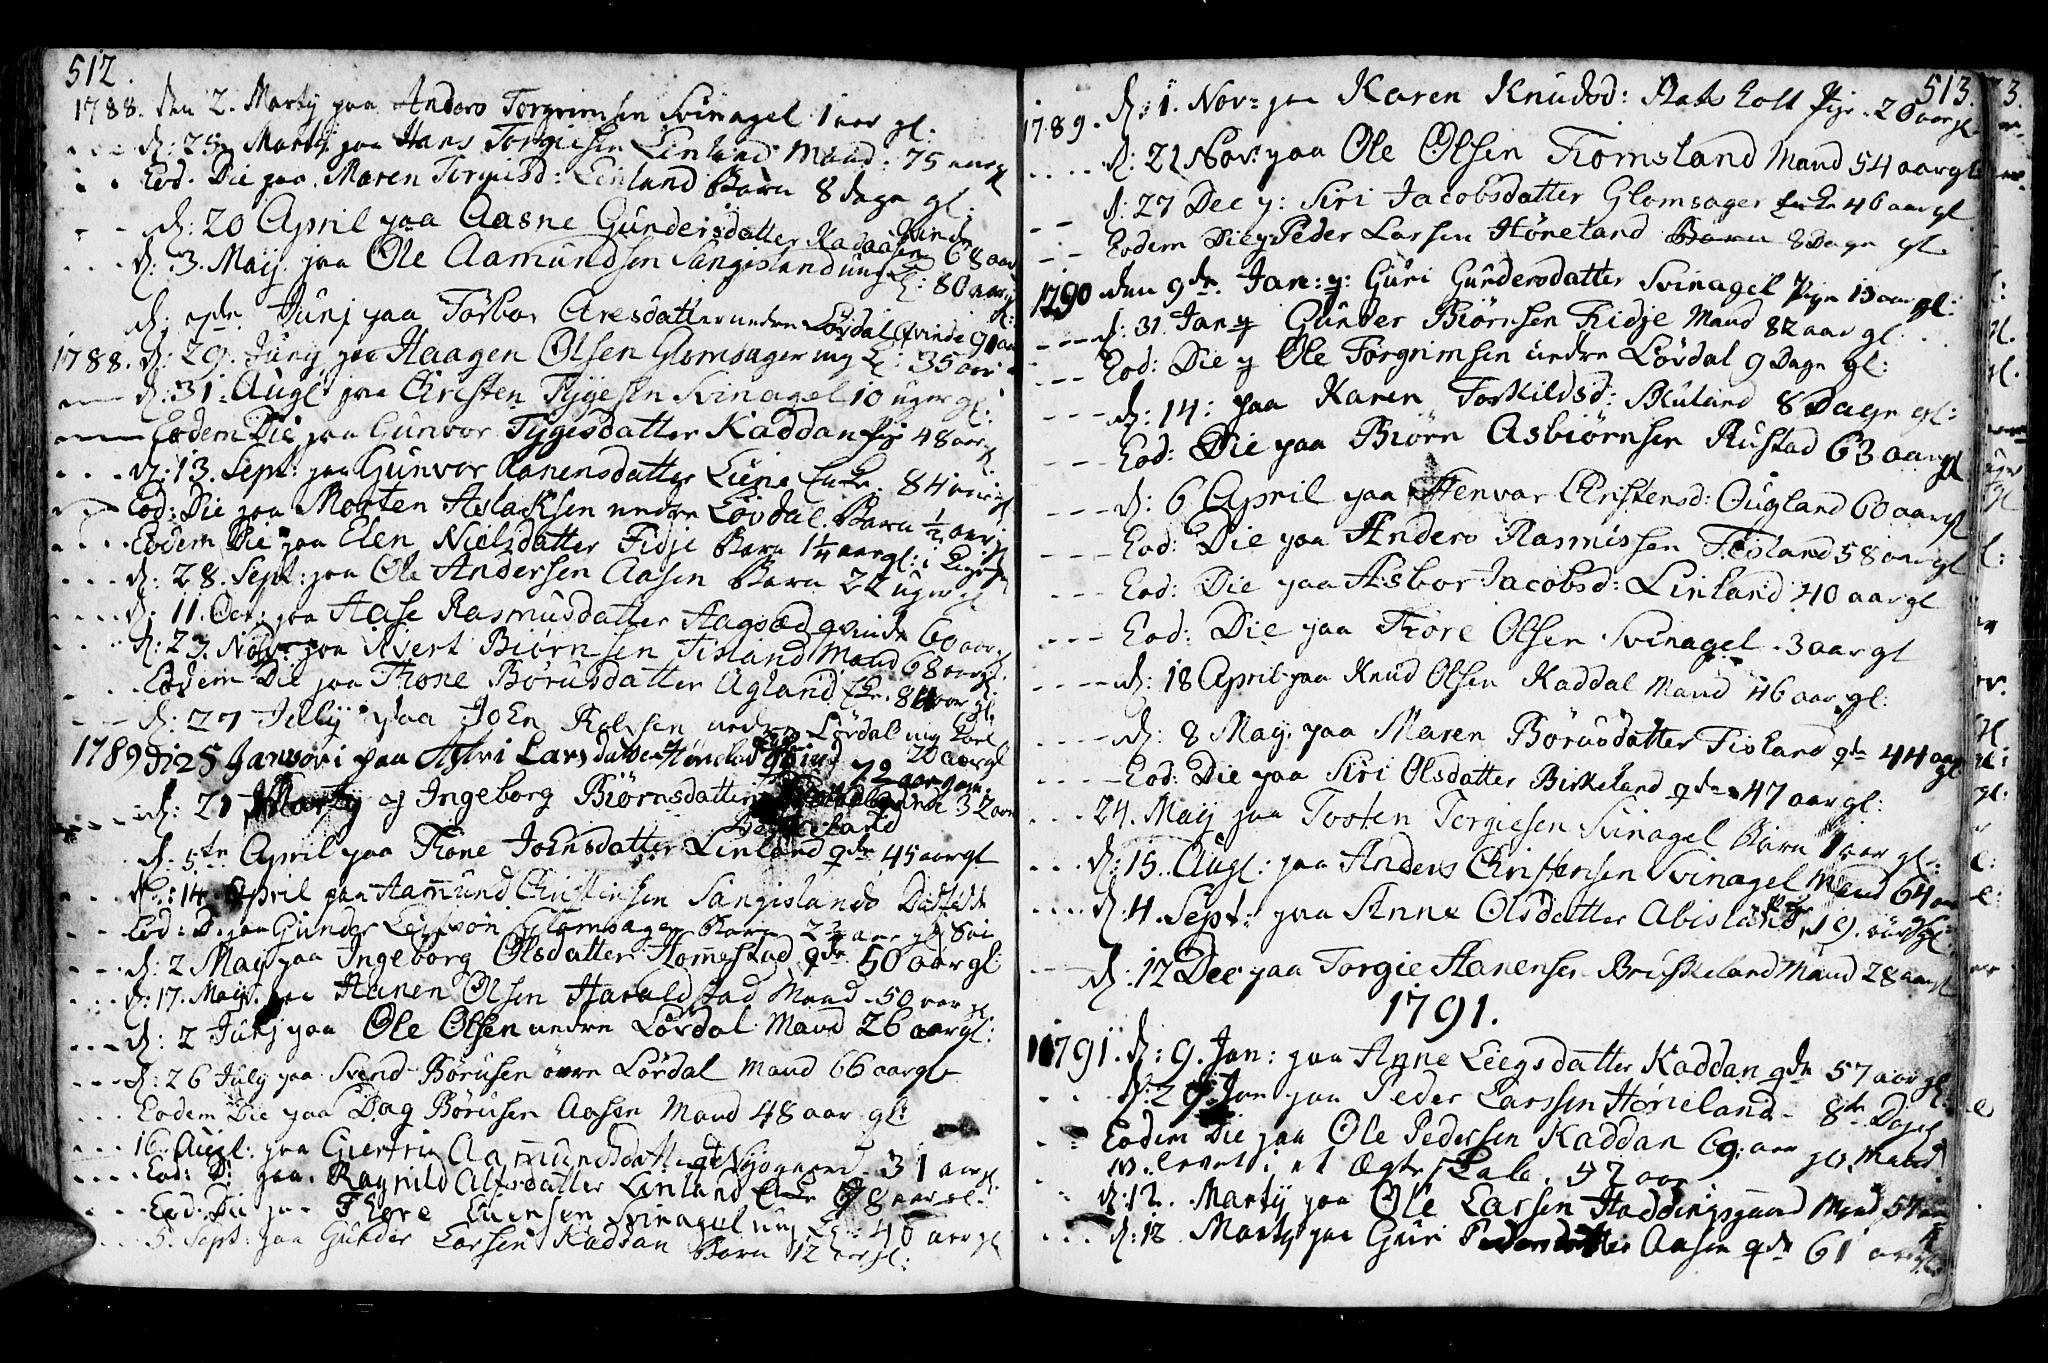 512.
1788. den 2. Martÿ paa Anders Torgrimsen Svinagel 1 aar gl:
d: 25 Martÿ paa Hans Torgiesen Linland Mand: 75 aar gl
Eod. Die paa Maren Torgiisd: Linland Barn 8 dage gl:
d: 20 April paa Aasne Gundersdatter Kadaasen Qvinde 68 aar
d: 3. Maÿ paa Ole Aamundsen Sangesland ung K: 80 aar gl:
d: Junj paa Torbor Aresdatter nedre Løvdal Qvinde 90 aar
1788. d: 29. Junÿ paa Haagen Olsen Glomsager ung K: 35 aar
d: 31. Augl paa Christen Tÿgesen Svinagel 10 uger gl:
Eodem Die paa Gunvor Tÿgesdatter Kaddan Pige 48 aar gl
d: 13. Sept: paa Gunvor Aanensdatter Liene Enke. 84 aar gl
Eod: Die paa Morten Aslaksen nedre Løvdal. Barn ½ aar gl
Eodem Die paa Elen Nielsdatter Fidje Barn 1¼ aar gl:
d: 28. Sept: paa Ole Andersen Aasen Barn 22 uger gl
d: 11. Oct: paa Aase Rasmusdatter Hagsæd qvinde 60 aar gl
d: 23. Nov: paa Sivert Biørnsen Fisland Mand 68 aar gl
Eodem Die paa Thone Børusdatter Agland Enke. 84 aar gl.
d: 27 Jully paa John Rolvsen nedre Løvdal ung Karl 20 aar gl
1789 Di 25 Januari paa Astri Larsdatter Høneland qvind 72 aar gam:
d: 21 Martÿ Ingeborg Biørnsdatter 32 aar
d. 5te April paa Thone Johnsdatter Linland qde 45 aar gl
d: 14. April paa Aamund Christensen Sangislands Dødfødde
Eod: D. paa Gunder Leifsøn Glomsager Barn 2½ aar gl
d: 2 Maÿ paa Ingeborg Olsdatter Homestad qde 50 aar gl:
d: 17. Maÿ. paa Hanen Olsen Haraldstad Mand. 50 aar gl
d: 2 Junj paa Ole Olsen nedre Løvdal Mand 26 aar gl:
d: 26 July paa Svend Børusen øvre Løvdal Mand 66 aar gl
Eodem Die paa Dag Børusen Aasen Mand 48 aar gl:
16. Augl: paa Giertru Aamundsdatter Nÿegaard. 31 aar gl.
Eod: D: paa. Ragnild Alfsdatter Linland Enke 98 aar gl:
Eod: Die paa Thore Svinagel ung K: 40 aar gl
5. Sept: paa Gunder Larsen Kaddan Barn 12 aar gl:
513.
1789. d: 1. Nov: paa Karen Knudsd: Aatsholt Pige. 20 aar gl
d: 22 Nov: paa Ole Olsen Fiomsland Mand 54 aar gl:
d: 27 Dec p: Siri Jacobsdatter Glomsager Enke 46 aar gl
Eodem Die p Peder Larsen Høneland Barn 8 Dage gl.
1790 den 9de Jan: p: Guri Gundersdatter Svinagel Pige 13 aar gl:
d: 31. Jan p Gunder Biørnsen Fidje Mand 82 aar gl:
Eod: Die p Ole Torgrimsen nedre Løvdal 9 Dage gl:
d: 14: paa Karen Torkildsd: Skuland 8 Dage gl:
Eod: Die paa Biørn Asbiørnsen Rustad 63 aar gl
d: 6 April paa Henvar Christensd: Ougland 60 aar gl
Eod: Die paa Anders Rasmissen Fisland 58 aar gl
Eod: Die paa Asbor Jacobsd: Linland 40 aar gl
Eod: Die paa Thore Olsen Svinagel. 3 aar gl
d: 18 April paa Knud Olsen Kaddal Mand 46 aar gl:
d: 8 May. paa Maren Børusdatter Fisland qde 44 aar gl
Eod: Die paa Siri Olsdatter Birkeland qde 47 aar gl:
24. Maÿ paa Tosten Torgiesen Svinagel Barn 1 aar gl:
d: 15. Augl: paa Anders Christensen Svinagel Mand 64 aar
d: 4. Sept: paa Anne Olsdatter Abisland, 19. aar gl:
d: 12 Dec paa Torgie Hanensen Bruskeland Mand 28 aar gl
1791.
1791. d: 9. Jan: paa Anne Leegsdatter Kaddan qde 57 aar gl:
d: 2 Jan paa Peder Larssen Høneland. 8te Dage
Eodem Die paa Ole Pedersen Kaddan 69. aar gl. Mand
levet i et Ægteskab. 42 aar
d: 12. Martÿ paa Ole Larsen Haddingsgaard Mand 57 aar
d: 12 Martÿ paa Guri Pedersdatter Aasen qde 61 aar gl